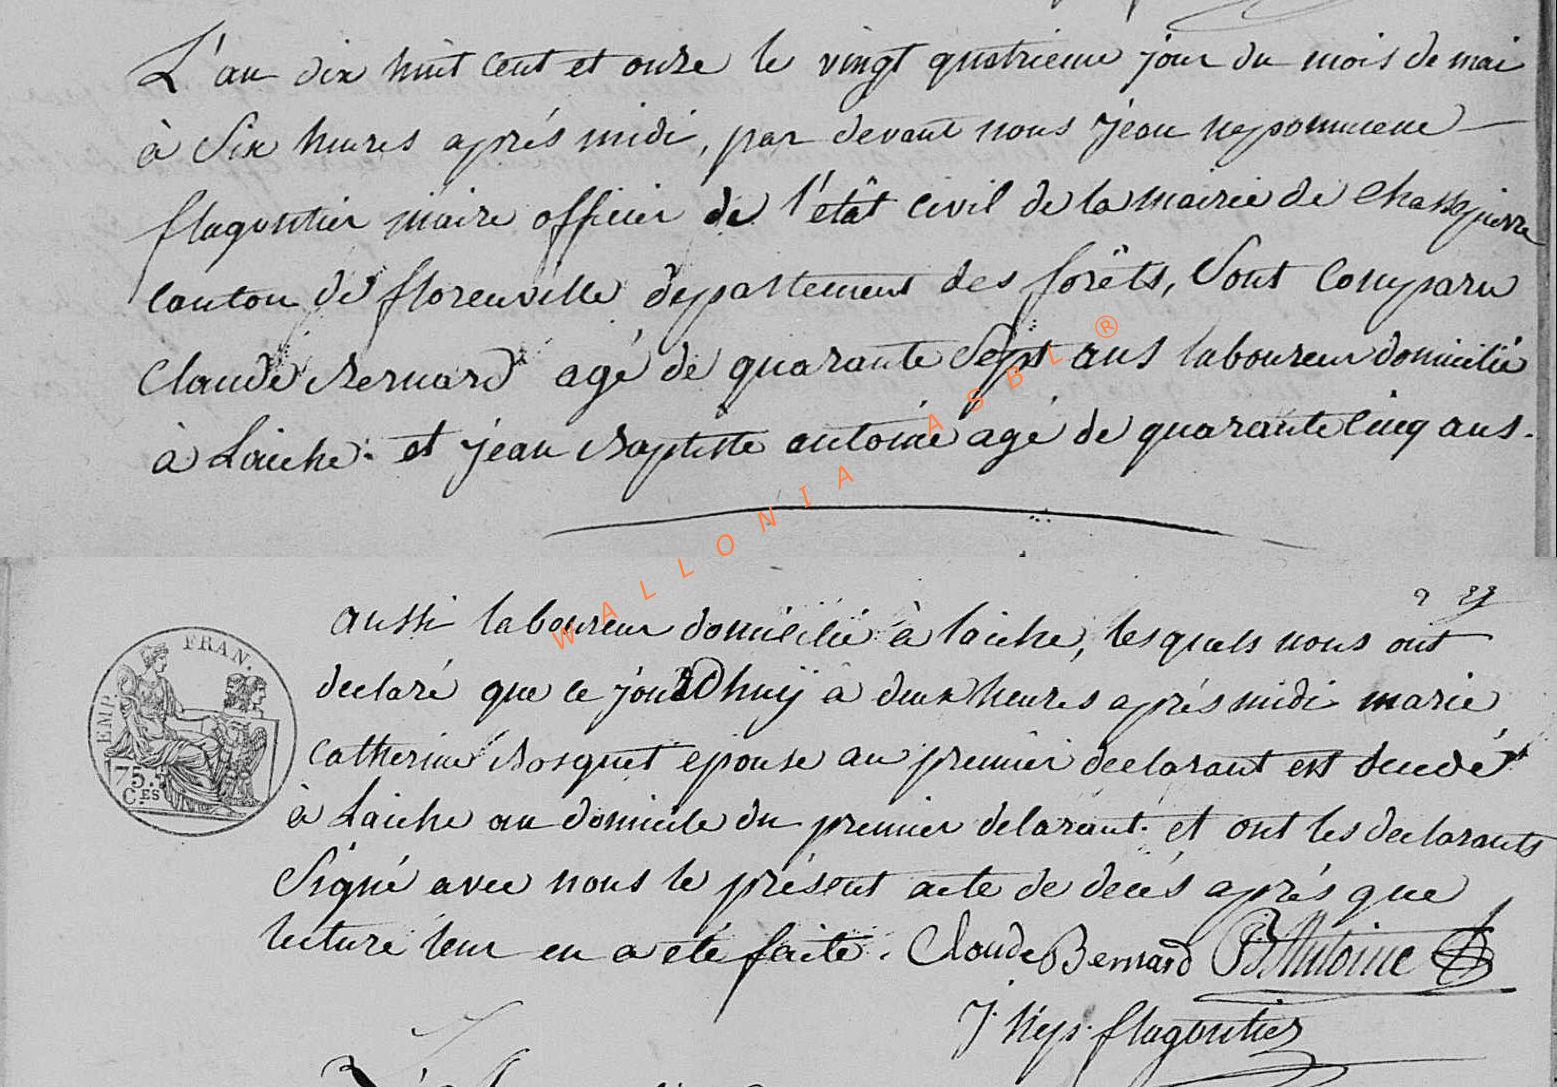 L'an dix huit cent et onze le vingt quatrieme jour du mois de mai
à Six heures aprés midi, par devant nous jean nepomucene
flagontier maire officier de l'etât civil de la mairie de Chassepierre
canton de florenville departement des forêts, Sont Comparu
Claude Bernard agé de quarante Sept ans laboureur domicilié
à Laiche. et jean Baptiste antoine agé de quarante cinq ans.
WALLONIA ASBL ®
aussi laboureur domicilié à laiche, lesquels nous ont
declaré que ce jourDhuÿ à deux heures aprés midi marie
Catherine Bosquet epouse au premier declarant est decedé
à Laiche au domicile du premier delarant. et ont les declarants
Signé avec nous le présent acte de decés aprés que
lecture leur en a eté faite. Claude Bernard JB Antoine
J. Nep. flagontier
EMP. FRAN.
75.
C.ES